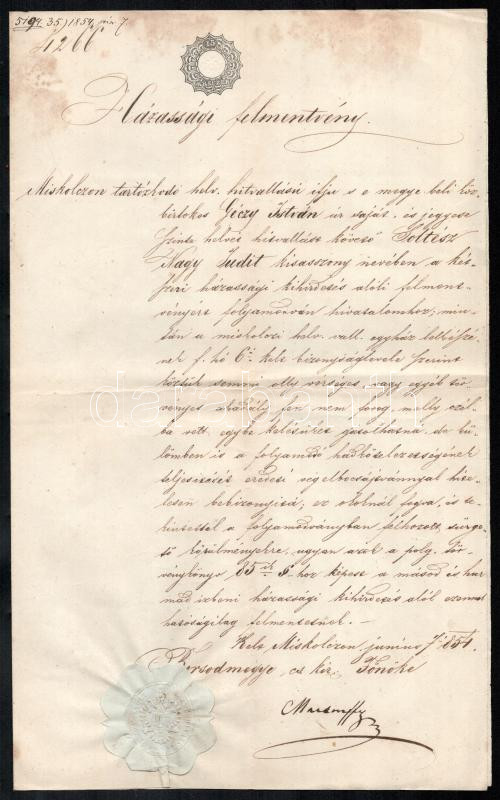 5194 35)1854 jun 7.
4266
Házassági felmentvény.
Miskolczon tartózkodó helv. hitvallású ifju s e megye beli köz
birtokos Géczy István úr saját, és jegyese
szinte helvét hitvallást követő Soltész
Nagy Judit kisasszony nevében a két
szeri házassági kihirdetés alóli felment
vényért folyamodván hivatalomhoz; miu
tán a miskolczi helv. vall. egyház lelkészé
nek f. hó 6án kelt bizonyságlevele szerint
köztük semmi olly vérséges, vagy egyéb tör
vényes akadály fen nem forog, melly czél
ba vett egybe kelésüket gátolhatná, de kü
lömben is a folyamodó hadkötelezettségének
teljesítését eredeti végelbocsájtvánnyal hite
lesen bebizonyitá; ez oknál fogva, és te
kintettel a folyamodványban felhozott sürge
tő körülményekre, ugyan azok a polg. tör
vénykönyv 85ik §-hoz képest a másod és har
mad izbeni házassági kihirdetés alól ezennel
hatóságilag felmentetnek. –
Kelt Miskolczon, junius 7. 854.
Borsodmegye cs. kir. Főnöke
darabanth